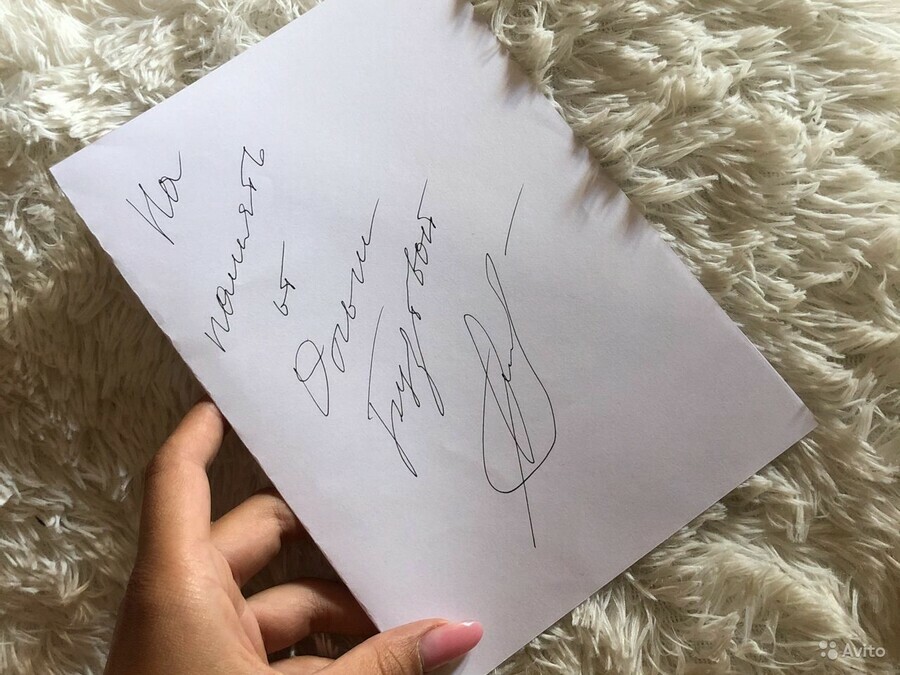 На
память
от
Ольги
Бузовой
Avito